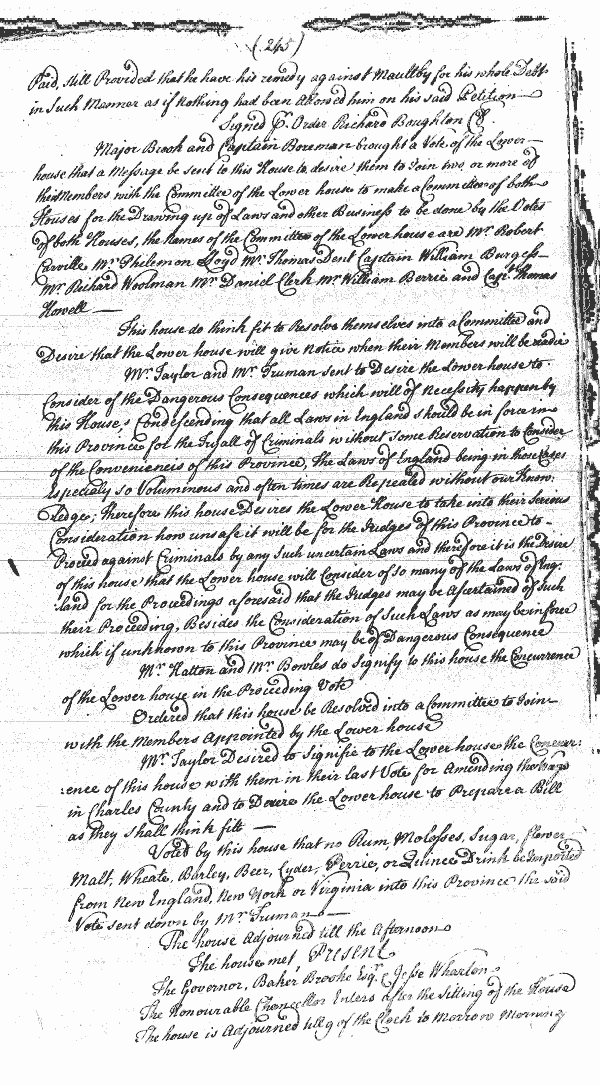 (245)
Paid, still Provided that he have his remedy against Maultby for his whole Debt
in Such Manner as if Nothing had been Allowed him on his said Petition
Signed P. Order Richard Boughton Clk.
Major Brook and Captain Boreman brought a Vote of the Lower
house that a Message be sent to this House to desire them to Join two or more of
their Members with the Committee of the Lower house to make a Committee of both
Houses for the Drawing up of Laws and other Business to be done by the Votes
of both Houses, the names of the Committee of the Lower house are Mr. Robert
Carville Mr. Philemon Lloyd Mr. Thomas Dent Captain William Burgess
Mr. Richard Woolman Mr. Daniel Clerk Mr. William Berrie and Capt. Thomas
Howell
This house do think fit to Resolve themselves into a Committee and
Desire that the Lower house will give Notice when their Members will be readie
Mr. Taylor and Mr. Truman sent to Desire the Lower house to
Consider of the Dangerous Consequences which will of Necessity happen by
this House,s Condescending that all Laws in England should be in force in
this Province for the Tryall of Criminals without Some Reservation to Consider
of the Conveniencis of this Province, the Laws of England being in those Cases
Especialy so Voluminous and often times are Repealed without our Know:
:ledge; Therefore this house Desires the Lower House to take into their Serious
Consideration how unsafe it will be for the Judges of this Province to
Proceed against Criminals by any Such uncertain Laws and therefore it is the Desire
of this house that the Lower house will Consider of so many of the Laws of Eng:
:land for the Proceedings aforesaid that the Judges may be Ascertained of Such
their Proceeding, Besides the Consideration of Such Laws as may be in force
which if unknown to this Province may be of Dangerous Consequence
Mr. Hatton and Mr. Bowles do Signify to this house the Concurrence
of the Lower house in the Proceeding Vote
Ordered that this house be Resolved into a Committee to Join
with the Members Appointed by the Lower house
Mr. Taylor Desired to Signifie to the Lower house the Concur:
:ence of this house with them in their last Vote for Amending the ways
in Charles County and to Desire the Lower house to Prepare a Bill
as they shall think fitt
Voted by this house that no Rum, Molosses, Sugar, flower
Malt, Wheate, Barley, Beer, Cyder, Perrie, or Quince Drink be Imported
from New England, New York or Virginia into this Province the said
Vote sent down by Mr. Truman
The house Adjourned till the Afternoon
The house met, Present
The Governor, Baker Brooke Esqr. Jesse Wharton
The Honourable Chancellor Enters after the Sitting of the House
The house is Adjourned till 9 of the Clock to Morrow Morning